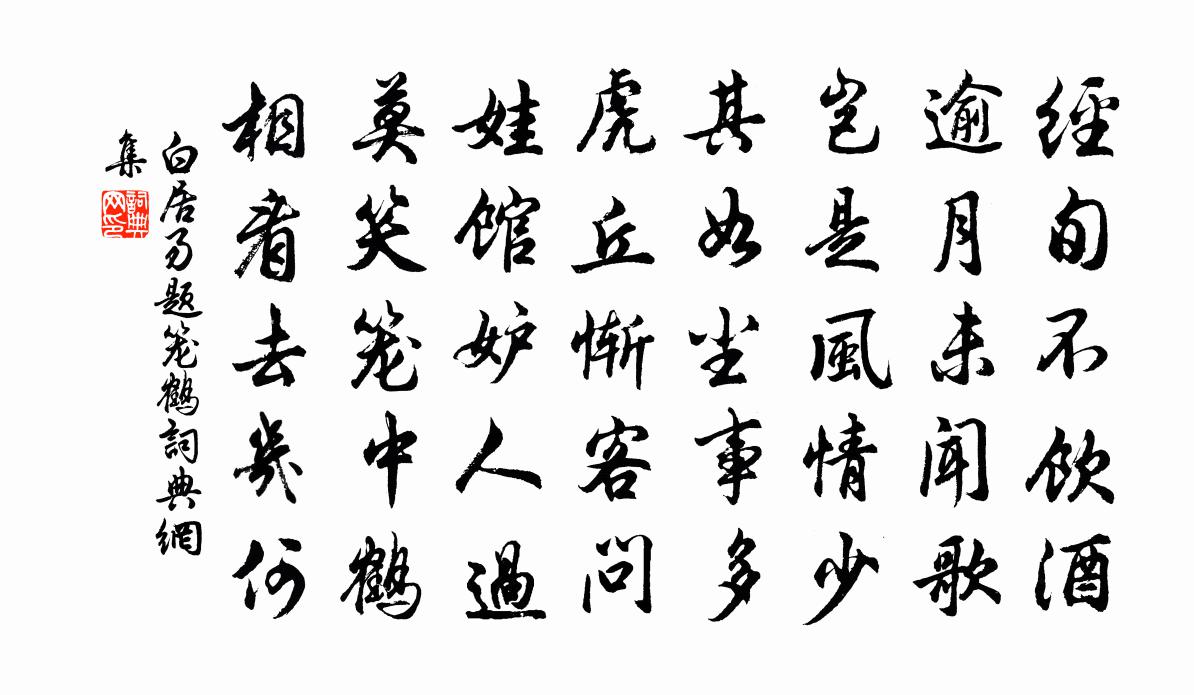 經旬不飲酒
逾月未聞歌
豈是風情少
其如塵事多
虎丘慚客問
娃館妒人過
莫笑籠中鶴
相看去幾何
白居易題籠鶴詞典網
集
詞典
网印